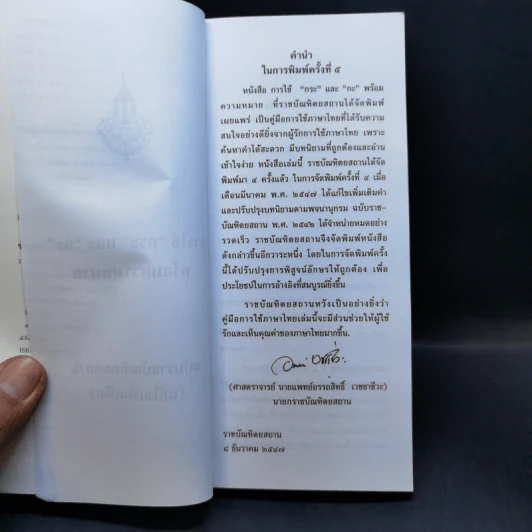 คำนำ
ในการพิมพ์ครั้งที่ ๕
หนังสือ การใช้ "กระ" และ "กะ" พร้อม
ความหมาย ที่ราชบัณฑิตยสถานได้จัดพิมพ์
เผยแพร่ เป็นคู่มือการใช้ภาษาไทยที่ได้รับความ
สนใจอย่างดียิ่งจากผู้รักการใช้ภาษาไทย เพราะ
ค้นหาคำได้สะดวก มีบทนิยามที่ถูกต้องและอ่าน
เข้าใจง่าย หนังสือเล่มนี้ ราชบัณฑิตยสถานได้จัด
พิมพ์มา ๔ ครั้งแล้ว ในการจัดพิมพ์ครั้งที่ ๔ เมื่อ
เดือนมีนาคม พ.ศ. ๒๕๔๗ ได้แก้ไขเพิ่มเติมคำ
และปรับปรุงบทนิยามตามพจนานุกรม ฉบับราช-
บัณฑิตยสถาน พ.ศ. ๒๕๔๒ ได้จำหน่ายหมดอย่าง
รวดเร็ว ราชบัณฑิตยสถานจึงจัดพิมพ์หนังสือ
ดังกล่าวขึ้นอีกวาระหนึ่ง โดยในการจัดพิมพ์ครั้ง
นี้ได้ปรับปรุงการพิสูจน์อักษรให้ถูกต้อง เพื่อ
ประโยชน์ในการอ้างอิงที่สมบูรณ์ยิ่งขึ้น
ราชบัณฑิตยสถานหวังเป็นอย่างยิ่งว่า
คู่มือการใช้ภาษาไทยเล่มนี้จะมีส่วนช่วยให้ผู้ใช้
รักและเห็นคุณค่าของภาษาไทยมากขึ้น.
(ศาสตราจารย์ นายแพทย์อรรถสิทธิ์ เวชชาชีวะ)
นายกราชบัณฑิตยสถาน
ราชบัณฑิตยสถาน
๘ ธันวาคม ๒๕๔๗